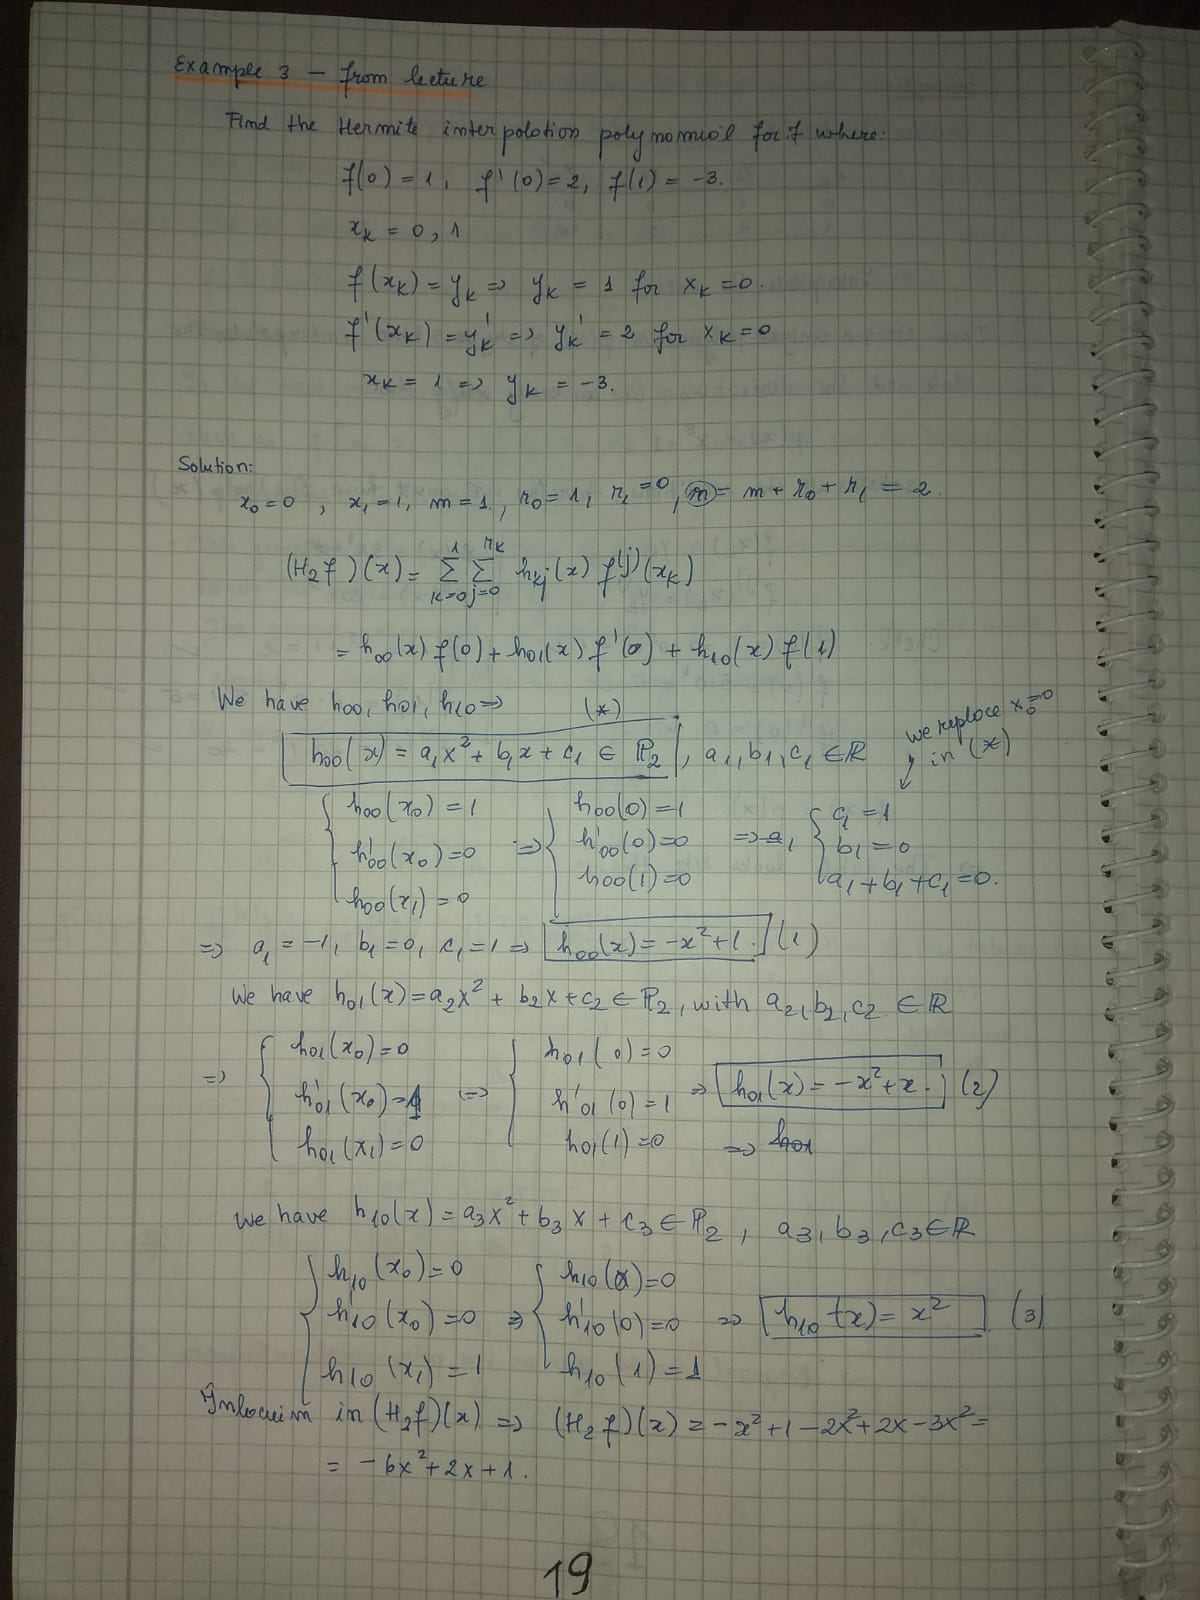 Example 3 – from lecture
Find the Hermite interpolation polynomial for f where:
f(0) = 1, f'(0) = 2, f(1) = -3.
xₖ = 0, 1
f(xₖ) = yₖ => yₖ = 1 for xₖ = 0.
f'(xₖ) = yₖ' => yₖ' = 2 for xₖ = 0
xₖ = 1 => yₖ = -3.
Solution:
x₀ = 0, x₁ = 1, m = 1, r₀ = 1, r₁ = 0, n = m + r₀ + r₁ = 2.
(H₂f)(x) = Σ_{k=0}^{1} Σ_{j=0}^{rₖ} hₖⱼ(x) f^{(j)}(xₖ)
= h₀₀(x) f(0) + h₀₁(x) f'(0) + h₁₀(x) f(1)
We have h₀₀, h₀₁, h₁₀ => (*)
we replace x₀=0
in (*)
h₀₀(x) = a₁x² + b₁x + c₁ ∈ ℙ₂, a₁, b₁, c₁ ∈ ℝ
{ h₀₀(x₀) = 1 { h₀₀(0) = 1 { c₁ = 1
h'₀₀(x₀) = 0 => h'₀₀(0) = 0 => a₁ b₁ = 0
h₀₀(x₁) = 0 h₀₀(1) = 0 a₁ + b₁ + c₁ = 0.
=> a₁ = -1, b₁ = 0, c₁ = 1 => h₀₀(x) = -x² + 1. (1)
We have h₀₁(x) = a₂x² + b₂x + c₂ ∈ ℙ₂, with a₂, b₂, c₂ ∈ ℝ
=> { h₀₁(x₀) = 0 { h₀₁(0) = 0
h'₀₁(x₀) = 1 => h'₀₁(0) = 1 => h₀₁(x) = -x² + x. (2)
h₀₁(x₁) = 0 h₀₁(1) = 0 => h₀₁
We have h₁₀(x) = a₃x² + b₃x + c₃ ∈ ℙ₂, a₃, b₃, c₃ ∈ ℝ
{ h₁₀(x₀) = 0 { h₁₀(0) = 0
h'₁₀(x₀) = 0 => h'₁₀(0) = 0 => h₁₀(x) = x² (3)
h₁₀(x₁) = 1 h₁₀(1) = 1
Înlocuim in (H₂f)(x) => (H₂f)(x) = -x² + 1 - 2x² + 2x - 3x² =
= -6x² + 2x + 1.
19